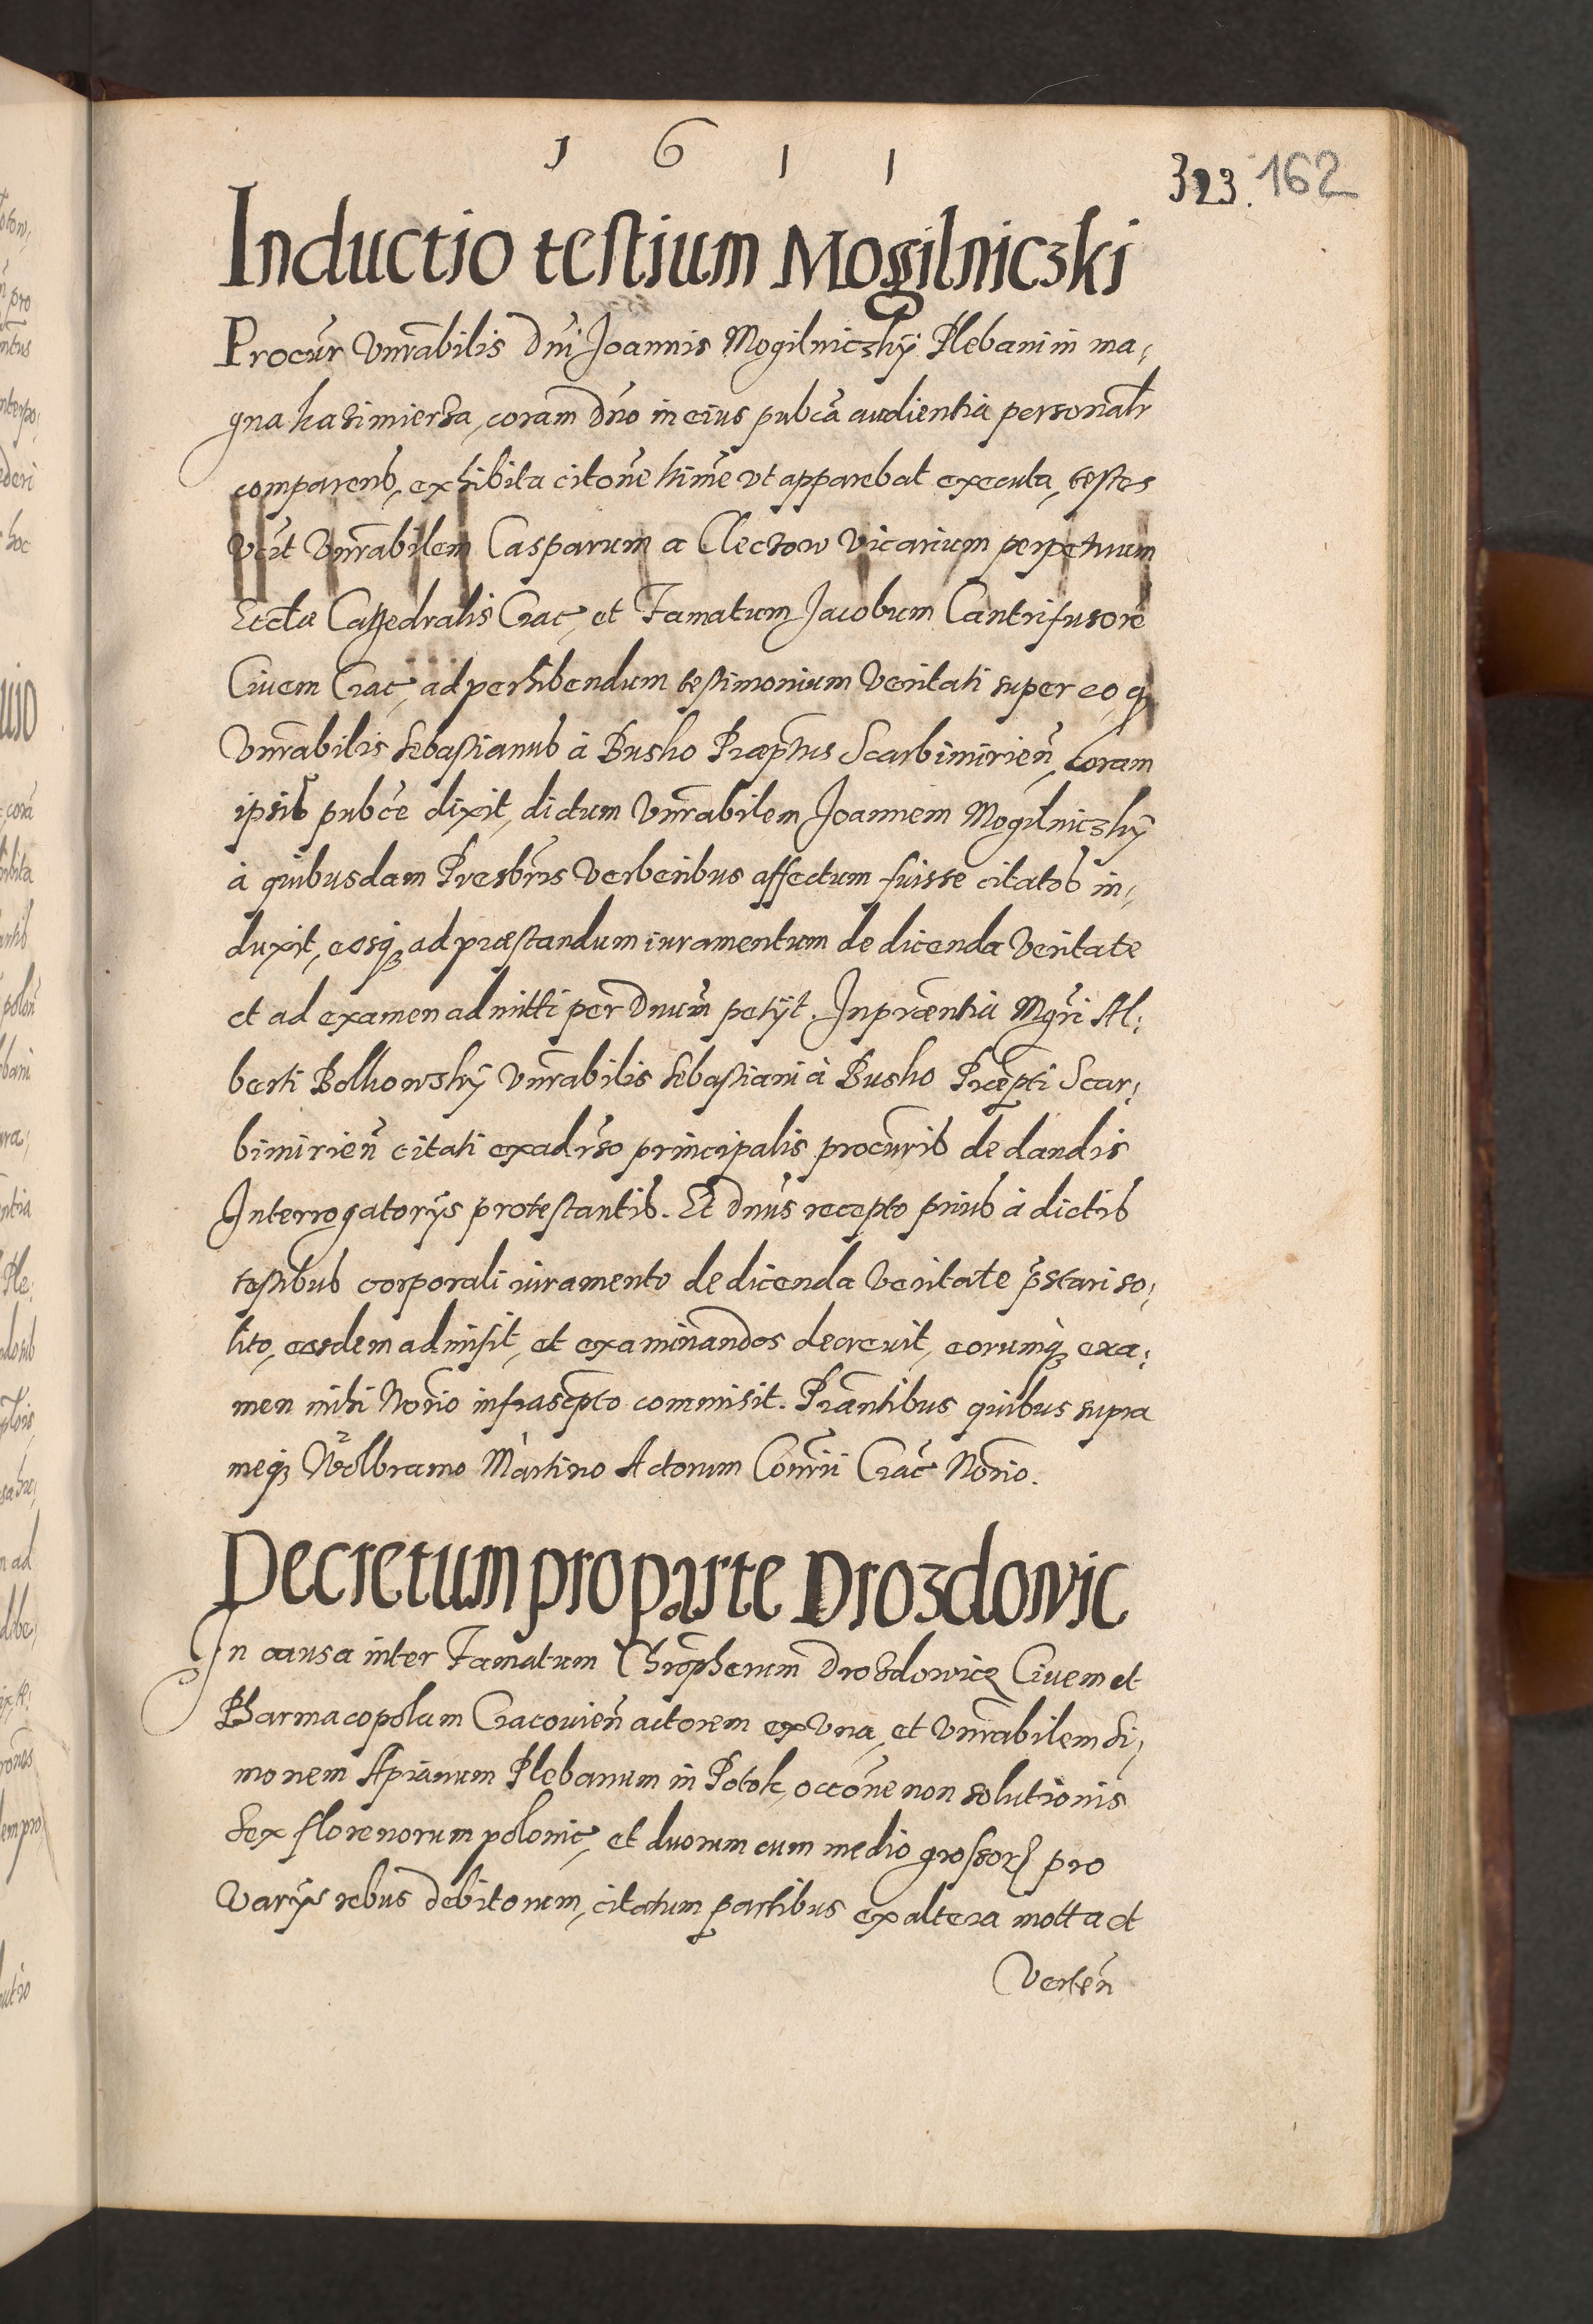 1 6 1 1
323. 162
Inductio testium Mogilniczki
Procūr Vnrabilis Dni Joannis Mogilniczky Plebani in ma;
gna kazimierza, coram dno in eius pubca audientia personalr
comparens, exhibita citone hime vt apparebat executa, testes
vcūt Vnrabilem Casparum a Clectow vicarium perpetuum
Ecclæ Cathedralis Crac, et Famatum Jacobum Cantrifusorē
Ciuem Crac, ad perhibendum testimonium veritati super eo, q
Vnrabilis Sebastianus à Busko Præptus Scarbimirien, coram
ipsis pubce dixit, dictum Vnrabilem Joannem Mogilniczky
à quibusdam Presbris verberibus affectum fuisse citatos in;
duxit, eosq3 ad præstandum iuramentum de dicenda veritate
et ad examen admitti per Dnum petijt. In præntia Mgri Al;
berti Bolkowsky Vnrabilis Sebastiani à Busko Præpti Scar;
bimirien citati exadrso principalis procuris de dandis
Interrogatorijs protestantis. Et Dnus recepto prius à dictis
testibus corporali iuramento de dicenda veritate pstari so;
lito, eosdem admisit, et examinandos decreuit, eorumq3 exa;
men mihi Norio infrascpto commisit. Præntibus quibus supra
meq3 Wolbramo Martino Actorum Conrii Crac Norio.
Decretum pro parte Drozdowic
In causa inter Famatum Chrophorum Drozdowicz Ciuem et
Pharmacopolam Cracouien actorem ex vna, et Vnrabilem Si;
monem Apianum Plebanum in Potok, occone non solutionis
sex florenorum polonic, et duorum cum medio grossor pro
varijs rebus debitorum, citatum partibus ex altera mott a et
Verten